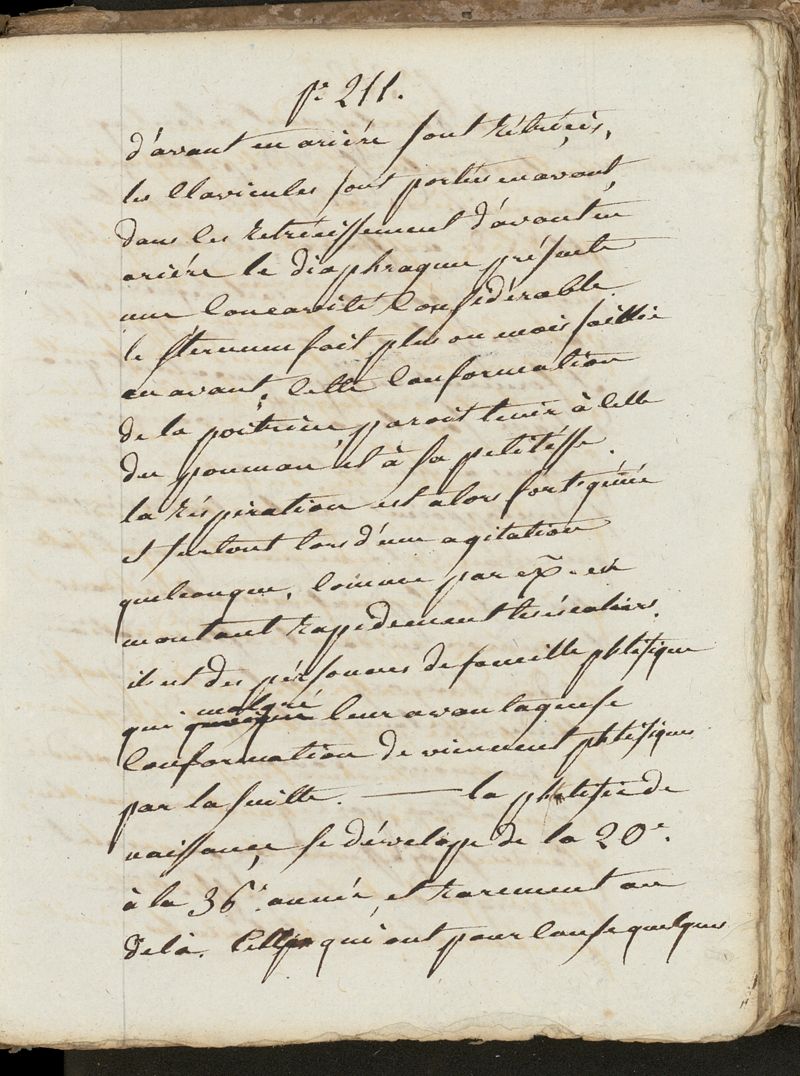 pe 211.
d'avant en ariére sont rétrécis,
les Clavicules sont portées en avant,
dans les retrécissement d'avant en
ariére le diaphragme présente
une Concavité Considérable
le sternum fait plus ou mois saillie
en avant. Cette Conformation
de la poitrine paroit tenir à celle
du poumon et à sa petitésse.
la réspiration est alors fort génée
et surtout lors d'une agitation
quelconque, Comme par ex. en
montant rapidement les éscaliers.
il est des pérsonnes de famille phtisique
qui malgré leur avantageuse
Conformation deviennent phtisiques
par la suitte. — la phtisie de
naissance se dévelope de la 20e.
à la 36e. année et rarement au
delà. Celles qui ont pour Cause quelques